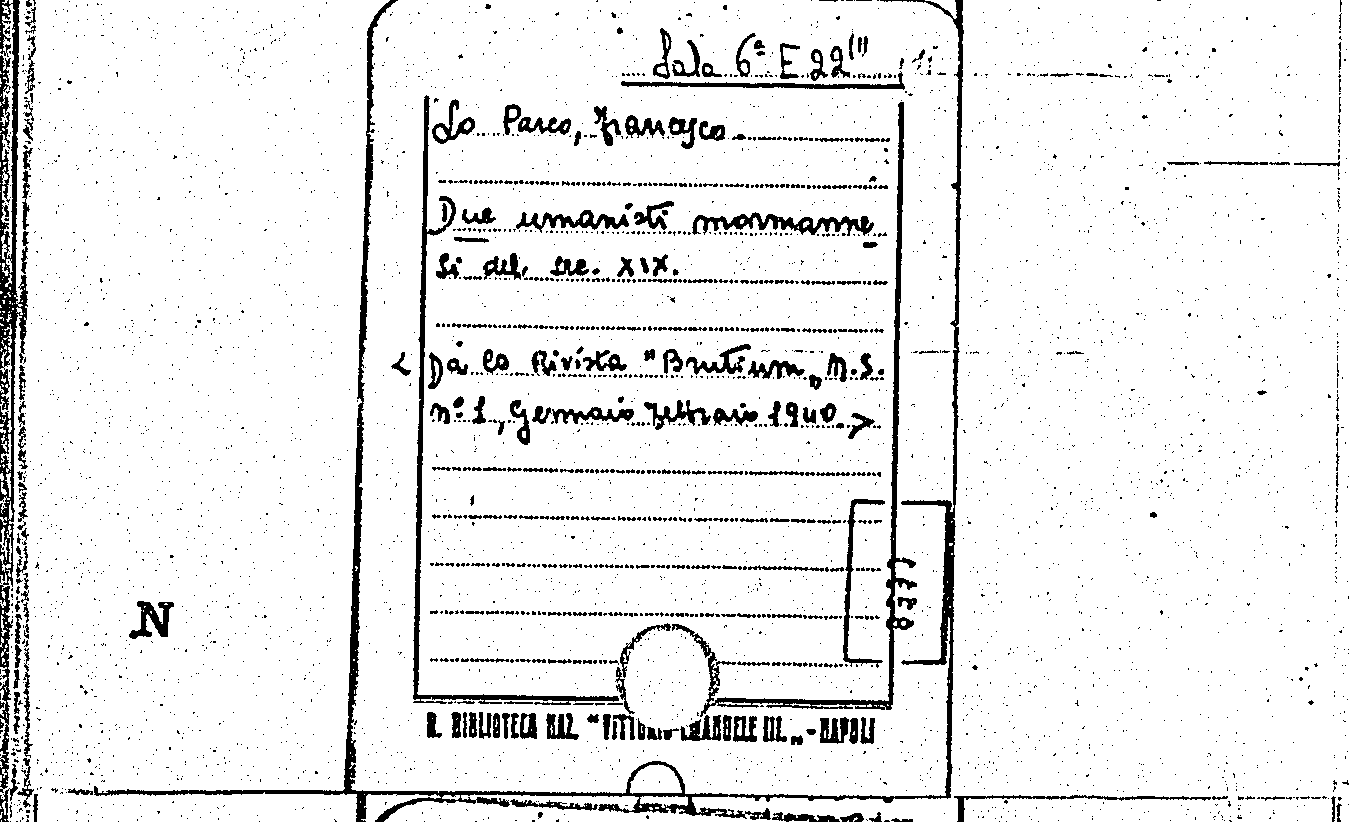 Sala 6ª E 22(11
Lo Parco, Francesco.
Due umanisti mormanne
si del sec. XIX.
< Da la Rivista "Brutium„ N.S.
nº 1, Gennaio Febbraio 1940. >
N
R. BIBLIOTECA NAZ. "VITTORIO EMANUELE III.„ - NAPOLI